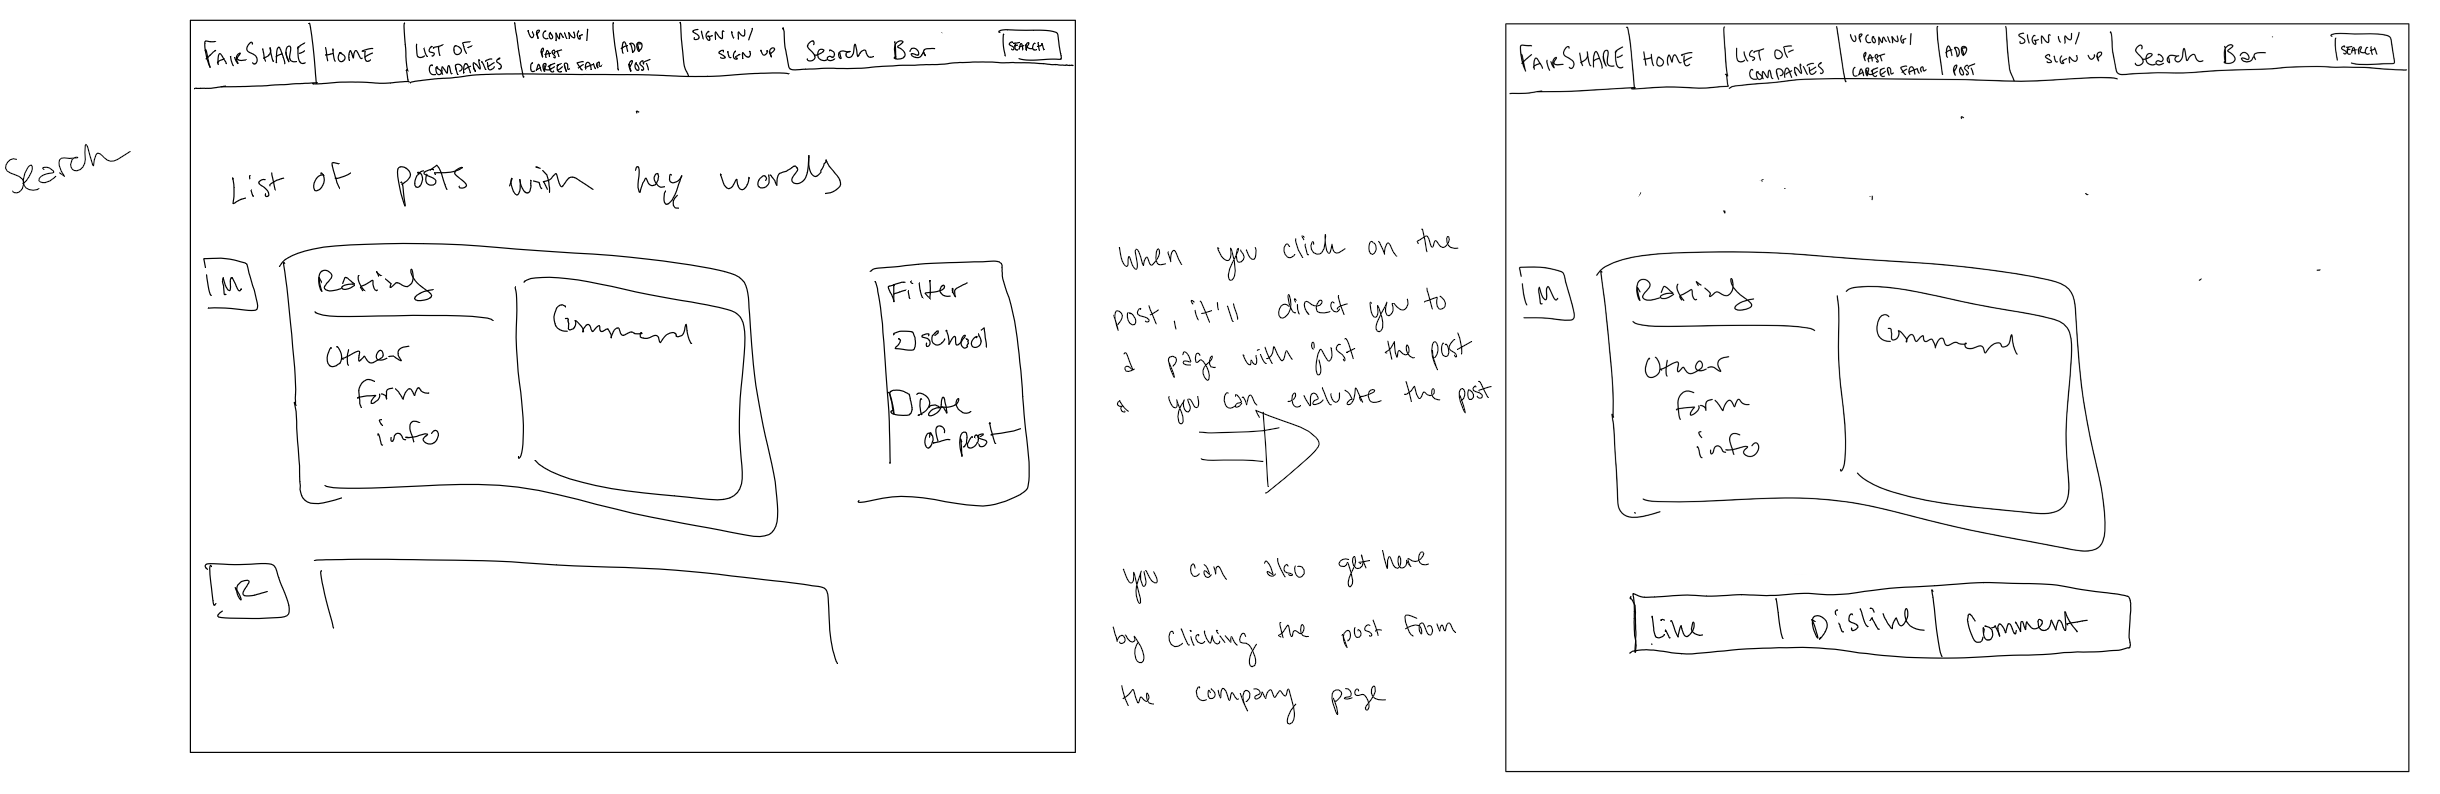 Search
FAIRSHARE
HOME
LIST OF
COMPANIES
UPCOMING/
PAST
CAREER FAIR
ADD
POST
SIGN IN/
SIGN UP
Search Bar
SEARCH
List of posts with key words
IM
Rating
Other
form
info
Comment
Filter
school
Date
of post
R
When you click on the
post, it'll direct you to
a page with just the post
& you can evaluate the post
you can also get here
by clicking the post from
the company page
FAIRSHARE
HOME
LIST OF
COMPANIES
UPCOMING/
PAST
CAREER FAIR
ADD
POST
SIGN IN/
SIGN UP
Search Bar
SEARCH
IM
Rating
Other
form
info
Comment
Like
Dislike
Comment